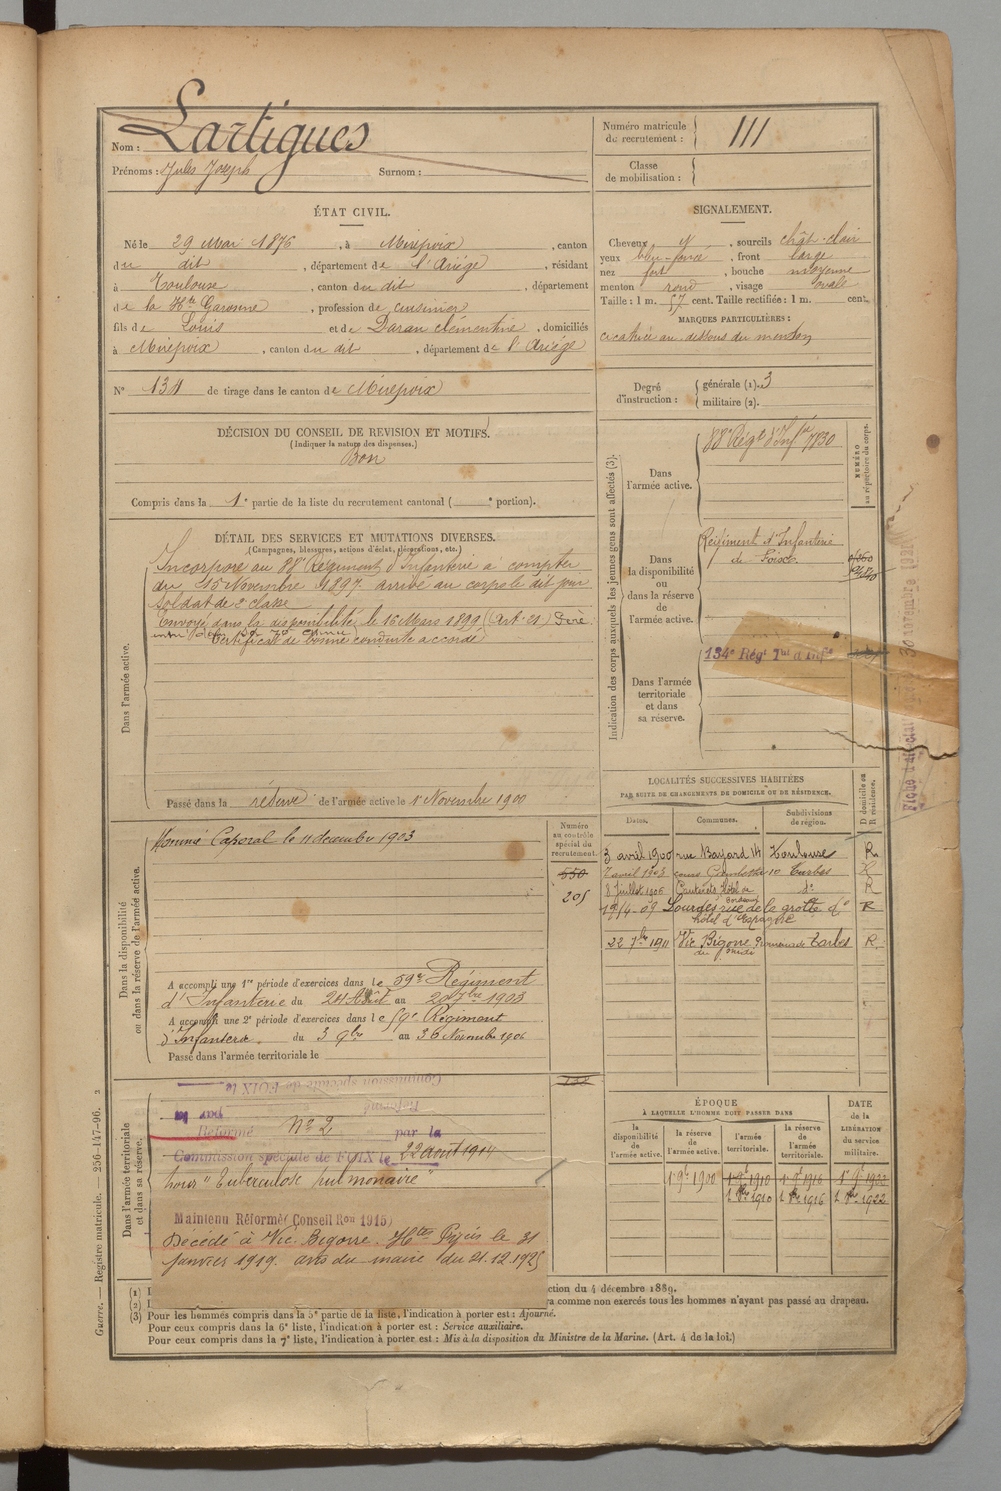 Nom : Lartigues
Prénoms : Jules Joseph Surnom :
Numéro matricule du recrutement : 111
Classe de mobilisation :
ÉTAT CIVIL.
Né le 29 Mai 1876, à Mirepoix, canton
du dit, département de l'Ariège, résidant
à Toulouse, canton du dit, département
de la Hte Garonne, profession de cuisinier
fils de Louis et de Daran Clémentine, domiciliés
à Mirepoix, canton du dit, département de l'Ariège
N° 134 de tirage dans le canton de Mirepoix
SIGNALEMENT.
Cheveux et, sourcils chât-clair
yeux bleu-foncé, front large
nez fort, bouche moyenne
menton rond, visage ovale
Taille : 1 m. 57 cent. Taille rectifiée : 1 m. cent.
MARQUES PARTICULIÈRES :
cicatrice au dessous du menton
Degré d'instruction : générale (1). 3
militaire (2).
DÉCISION DU CONSEIL DE REVISION ET MOTIFS.
(Indiquer la nature des dispenses.)
Bon
Compris dans la 1e partie de la liste du recrutement cantonal ( e portion).
DÉTAIL DES SERVICES ET MUTATIONS DIVERSES.
(Campagnes, blessures, actions d'éclat, décorations, etc.)
Dans l'armée active.
Incorporé au 88e Régiment d'Infanterie à compter
du 15 Novembre 1897 arrivé au corps le dit jour
soldat de 2e classe
Envoyé dans la disponibilité le 16 Mars 1899 (Art. 21)
Certificat de bonne conduite accordé
Passé dans la réserve de l'armée active le 1 Novembre 1900
Indication des corps auxquels les jeunes gens sont affectés (3).
NUMÉRO au répertoire du corps.
Dans l'armée active.
88e Régt d'Infie 7830
Dans la disponibilité ou dans la réserve de l'armée active.
Régiment d'Infanterie
de Foix
Dans l'armée territoriale et dans sa réserve.
134e Régt Tal d'Infie
30 novembre
Dans la disponibilité ou dans la réserve de l'armée active.
Numéro au contrôle spécial du recrutement.
550
205
Nommé Caporal le 11 décembre 1903
A accompli une 1re période d'exercices dans le 59e Régiment
d'Infanterie du 24 Août au 20 7bre 1903
A accompli une 2e période d'exercices dans le 59e Régiment
d'Infanterie du 3 9bre au 30 Novembre 1906
Passé dans l'armée territoriale le
LOCALITÉS SUCCESSIVES HABITÉES
PAR SUITE DE CHANGEMENTS DE DOMICILE OU DE RÉSIDENCE.
Dates. Communes. Subdivisions de région. D domicile ou R résidence.
3 avril 1900 rue Bayard 14 Toulouse R
7 avril 1903 cours Gambetta 10 Tarbes R
8 Juillet 1906 Cauterets Hôtel de do R
Bordeaux
19/4-09 Lourdes rue de la grotte do R
hôtel d'Espagne
22 7bre 1911 Vic Bigorre Promenade Tarbes R
du midi
Dans l'armée territoriale et dans sa réserve.
Commission spéciale de FOIX le
Réformé par la
Réformé N° 2 par la
Commission spéciale de FOIX le 22 août 1914
pour "Tuberculose pulmonaire"
Maintenu Réformé (Conseil Ron 1915)
Décédé à Vic-Bigorre Htes Pyées le 31
janvier 1919. avis du maire du 21.12.1925
ÉPOQUE
À LAQUELLE L'HOMME DOIT PASSER DANS
la disponibilité de l'armée active. la réserve de l'armée active. l'armée territoriale. la réserve de l'armée territoriale.
DATE de la LIBÉRATION du service militaire.
1 9bre 1900 1 9bre 1910 1 9bre 1916 1er 9bre 1922
1 8bre 1910 1 8bre 1916 1 8bre 1922
(1) ction du 4 décembre 1889.
(2) ra comme non exercés tous les hommes n'ayant pas passé au drapeau.
(3) Pour les hommes compris dans la 5e partie de la liste, l'indication à porter est : Ajourné.
Pour ceux compris dans la 6e liste, l'indication à porter est : Service auxiliaire.
Pour ceux compris dans la 7e liste, l'indication à porter est : Mis à la disposition du Ministre de la Marine. (Art. 4 de la loi.)
Guerre. — Registre matricule. — 256-147-96. 2